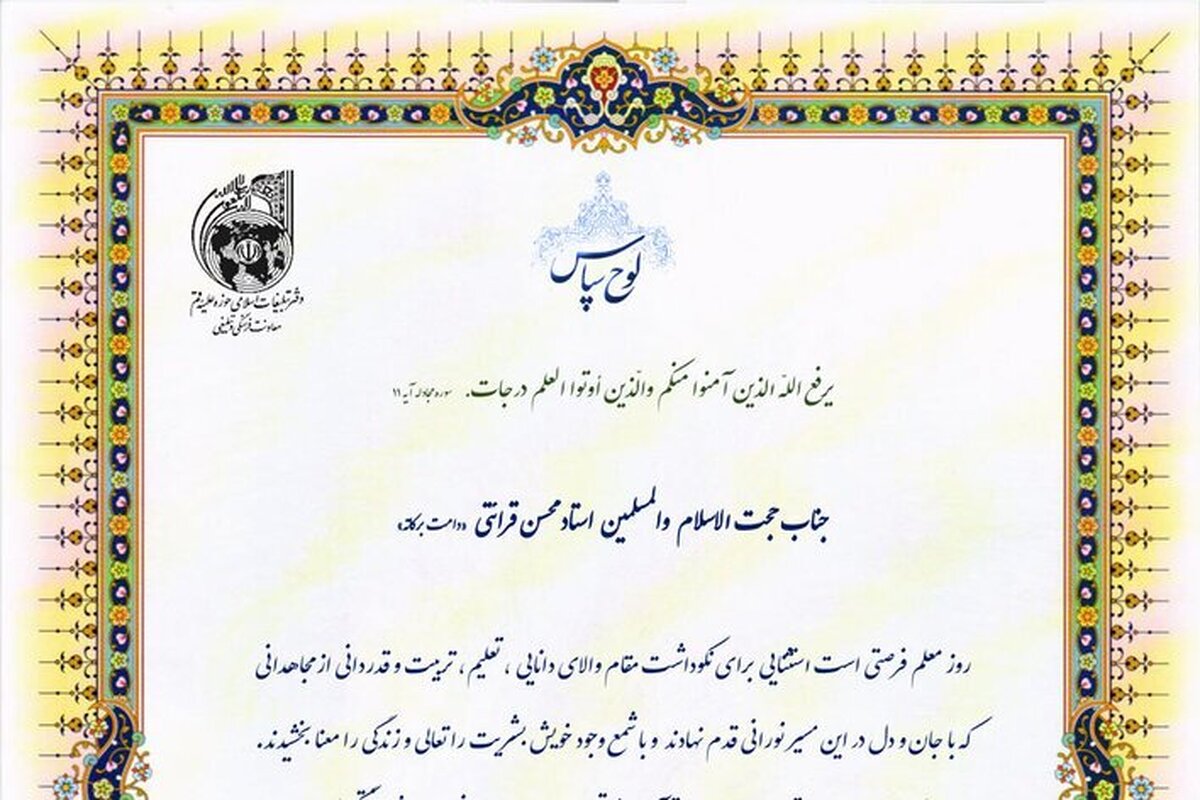 لوح سپاس
دفتر تبلیغات اسلامی حوزه علمیه قم
معاونت فرهنگی و تبلیغی
یرفع اللّه الذین آمنوا منکم والّذین أوتوا العلم درجات. سوره مجادله آیه ۱۱
جناب حجت الاسلام والمسلمین استاد محسن قرائتی «دامت برکاته»
روز معلم فرصتی است استثنایی برای نکوداشت مقام والای دانایی ، تعلیم ، تربیت و قدردانی از مجاهدانی
که با جان و دل در این مسیر نورانی قدم نهادند و با شمع وجود خویش بشریت را تعالی و زندگی را معنا بخشیدند.